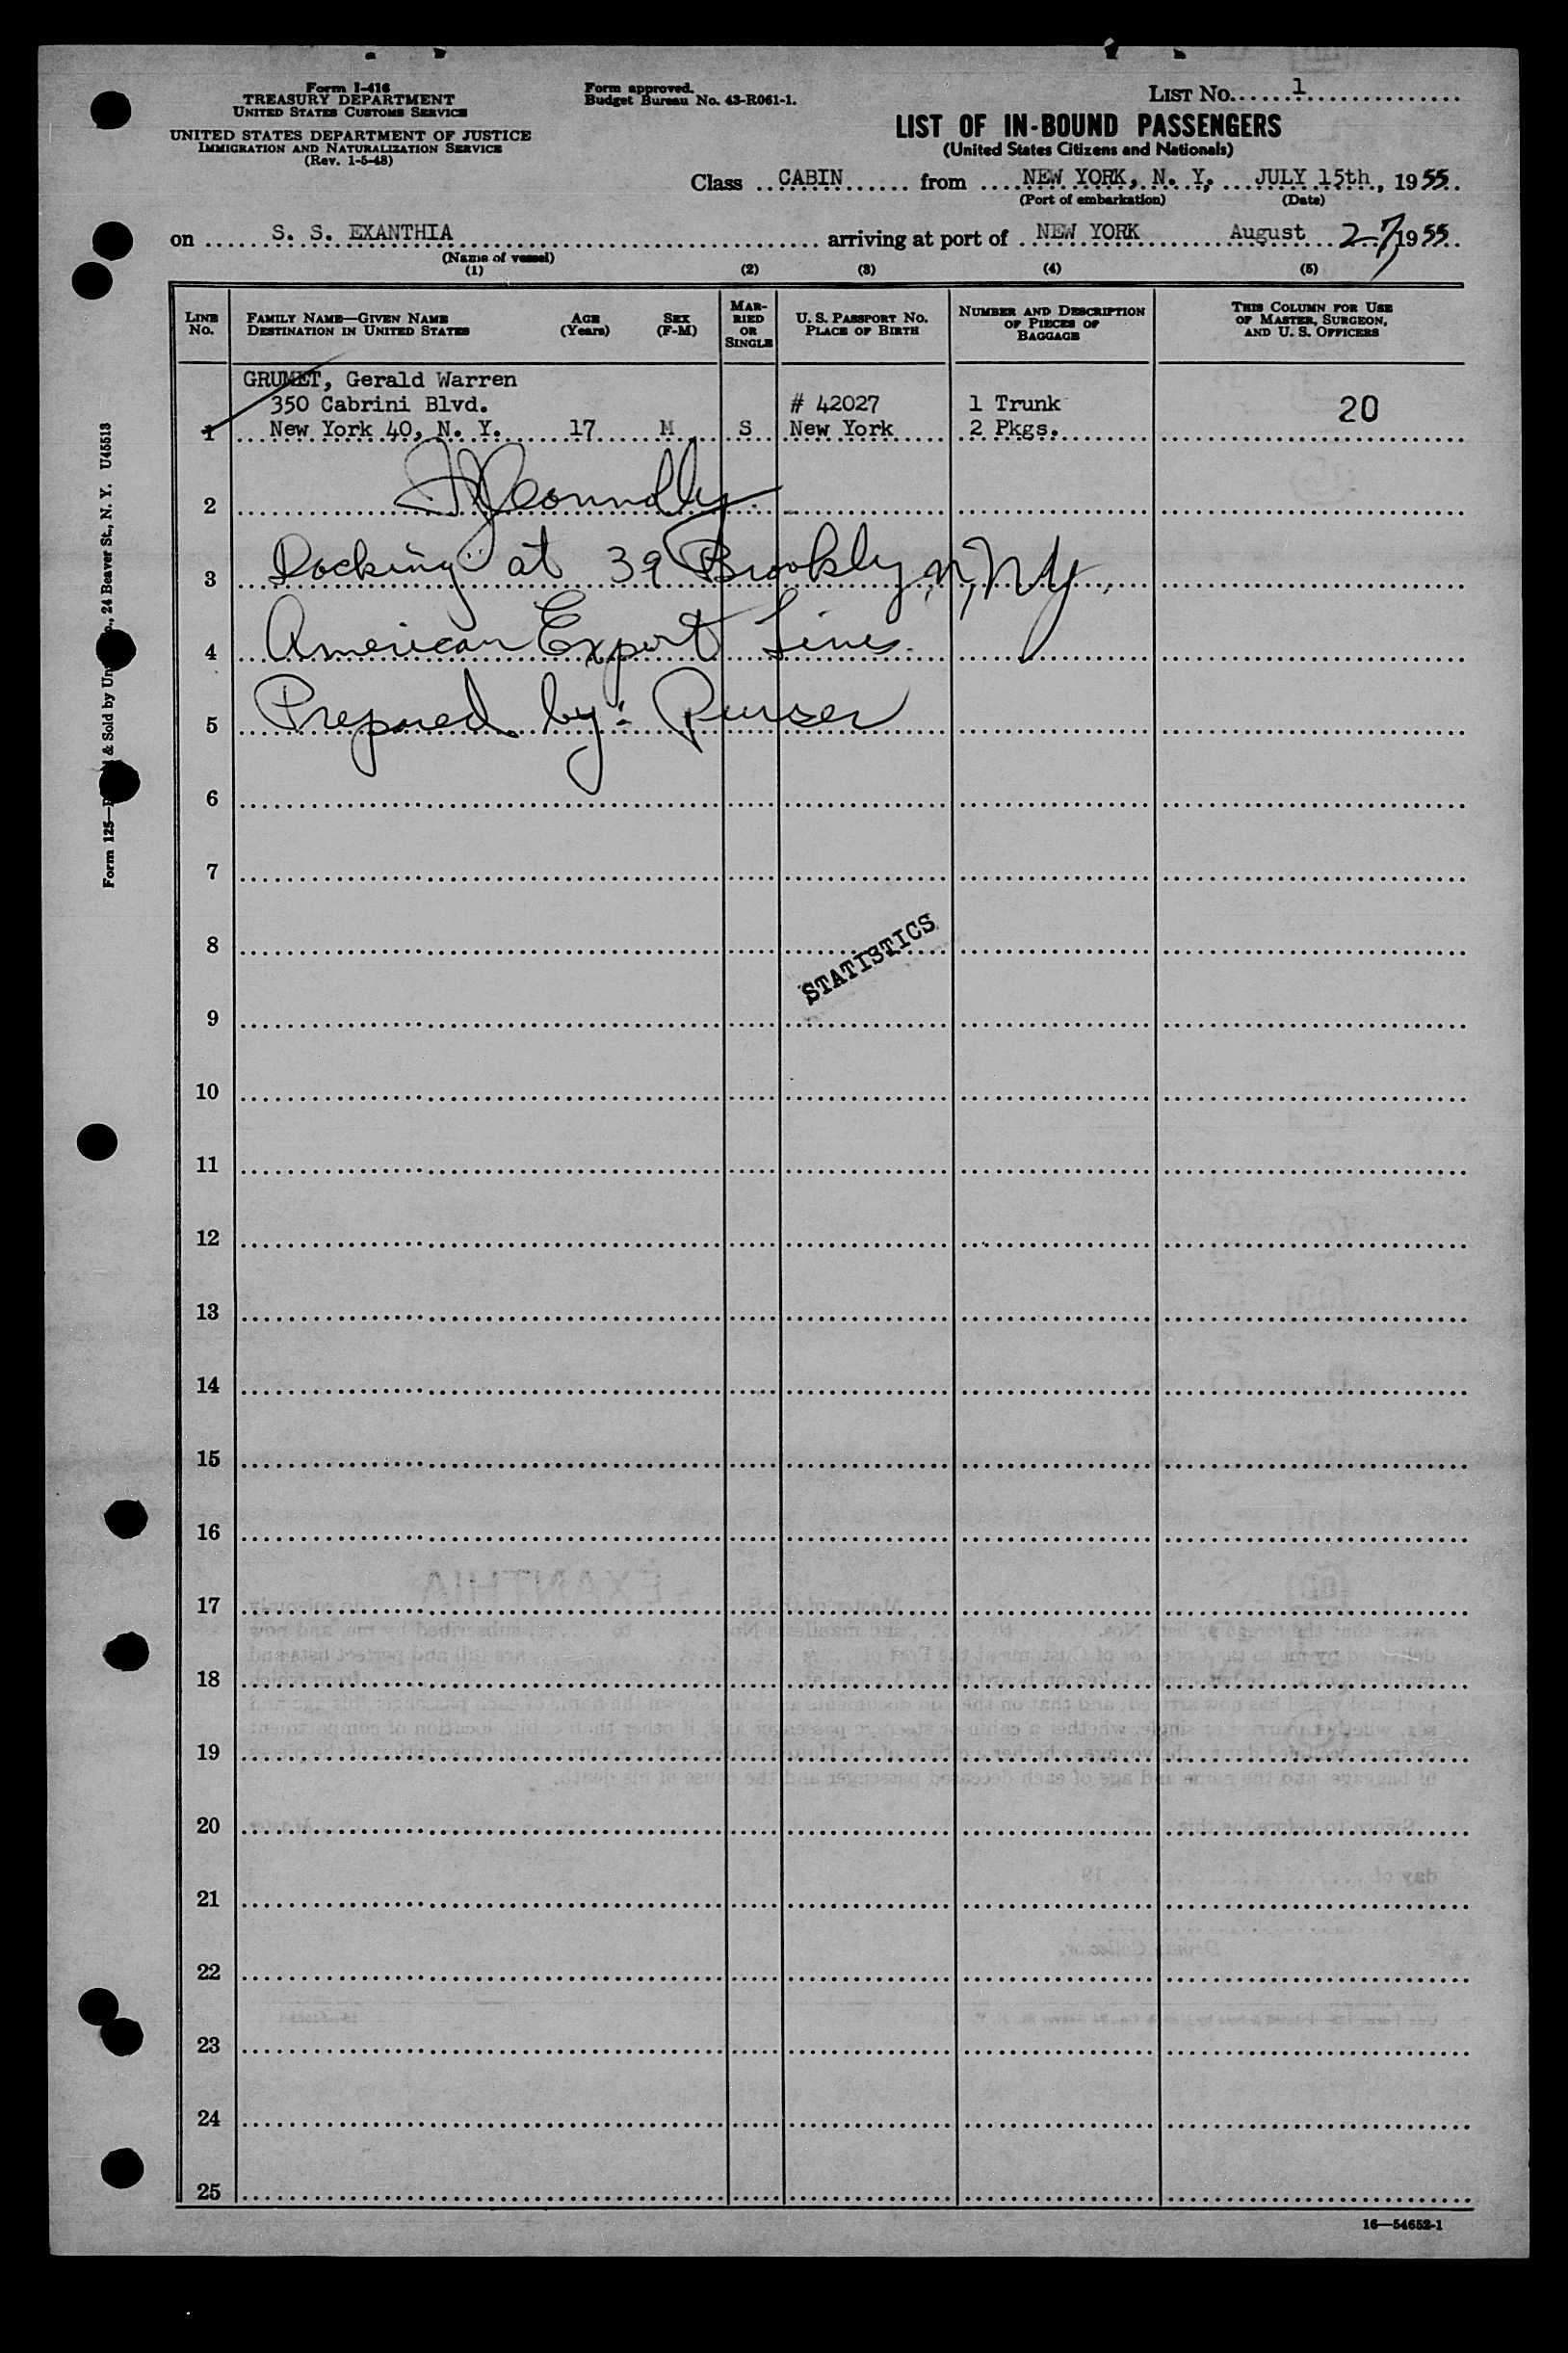 Form I-416
TREASURY DEPARTMENT
UNITED STATES CUSTOMS SERVICE
UNITED STATES DEPARTMENT OF JUSTICE
IMMIGRATION AND NATURALIZATION SERVICE
(Rev. 1-5-48)
Form approved.
Budget Bureau No. 43-R061-1.
LIST NO. 1
LIST OF IN-BOUND PASSENGERS
(United States Citizens and Nationals)
Class CABIN from NEW YORK, N. Y. JULY 15th, 1955
(Port of embarkation) (Date)
on S. S. EXANTHIA arriving at port of NEW YORK August 27, 1955
(Name of vessel)
(1) (2) (3) (4) (5)
LINE No.
FAMILY NAME—GIVEN NAME
DESTINATION IN UNITED STATES
AGE (Years)
SEX (F-M)
MARRIED OR SINGLE
U. S. PASSPORT NO.
PLACE OF BIRTH
NUMBER AND DESCRIPTION OF PIECES OF BAGGAGE
THIS COLUMN FOR USE OF MASTER, SURGEON, AND U. S. OFFICERS
GRUMET, Gerald Warren
350 Cabrini Blvd. # 42027 1 Trunk 20
1 New York 40, N. Y. 17 M S New York 2 Pkgs.
2
3 Docking at 39 Brooklyn, NY.
4 American Export Lines
5 Prepared by: Purser
6
7
8
STATISTICS
9
10
11
12
13
14
15
16
17
18
19
20
21
22
23
24
25
16—54652-1
Form 125— & Sold by 24 Beaver St., N. Y. U45513